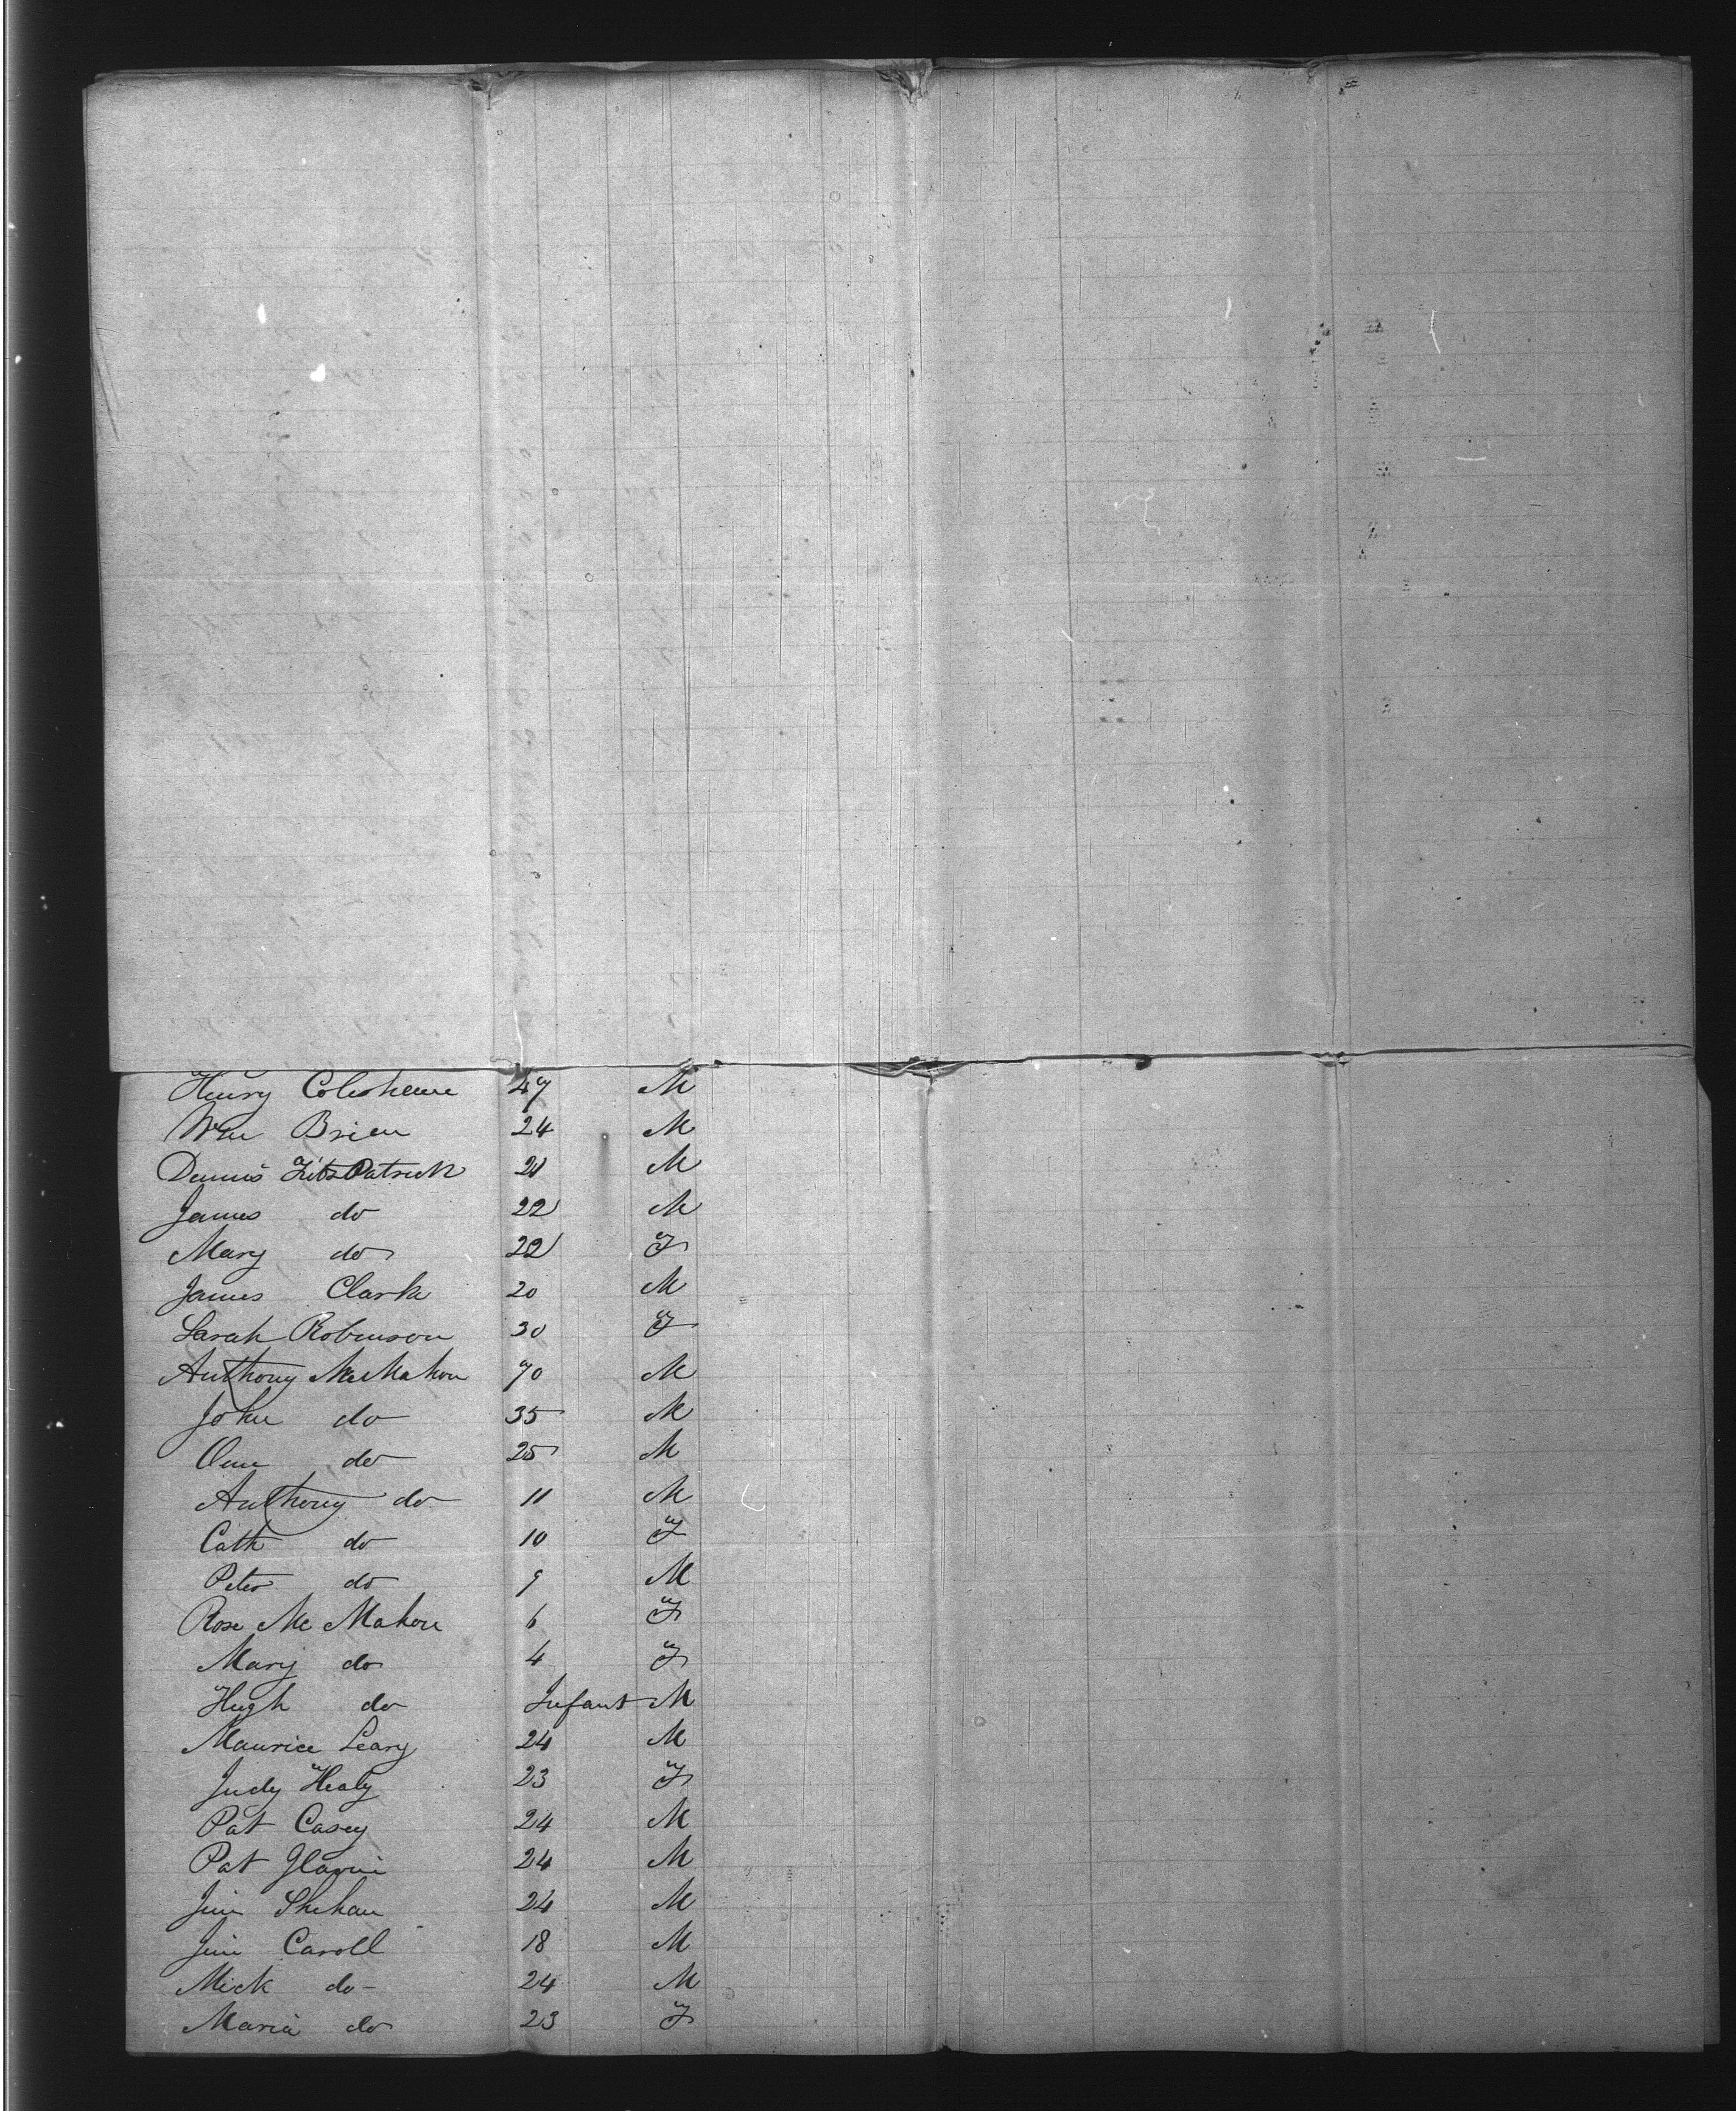 Henry 47 M
Wm Brien 24 M
Dennis FitzPatrick 21 M
James do 22 M
Mary do 22 F
James Clark 20 M
Sarah Robinson 30 F
Anthony McMahon 70 M
John do 35 M
do 25 M
Anthony do 11 M
Cath do 10 F
Peter do 9 M
Rose Mc Mahon 6 F
Mary do 4 F
Hugh do Infant M
Maurice Leary 24 M
Judy Healy 23 F
Pat Casey 24 M
Pat Glavin 24 M
Jim Shehan 24 M
Jim Caroll 18 M
Mick do 24 M
Maria do 23 F